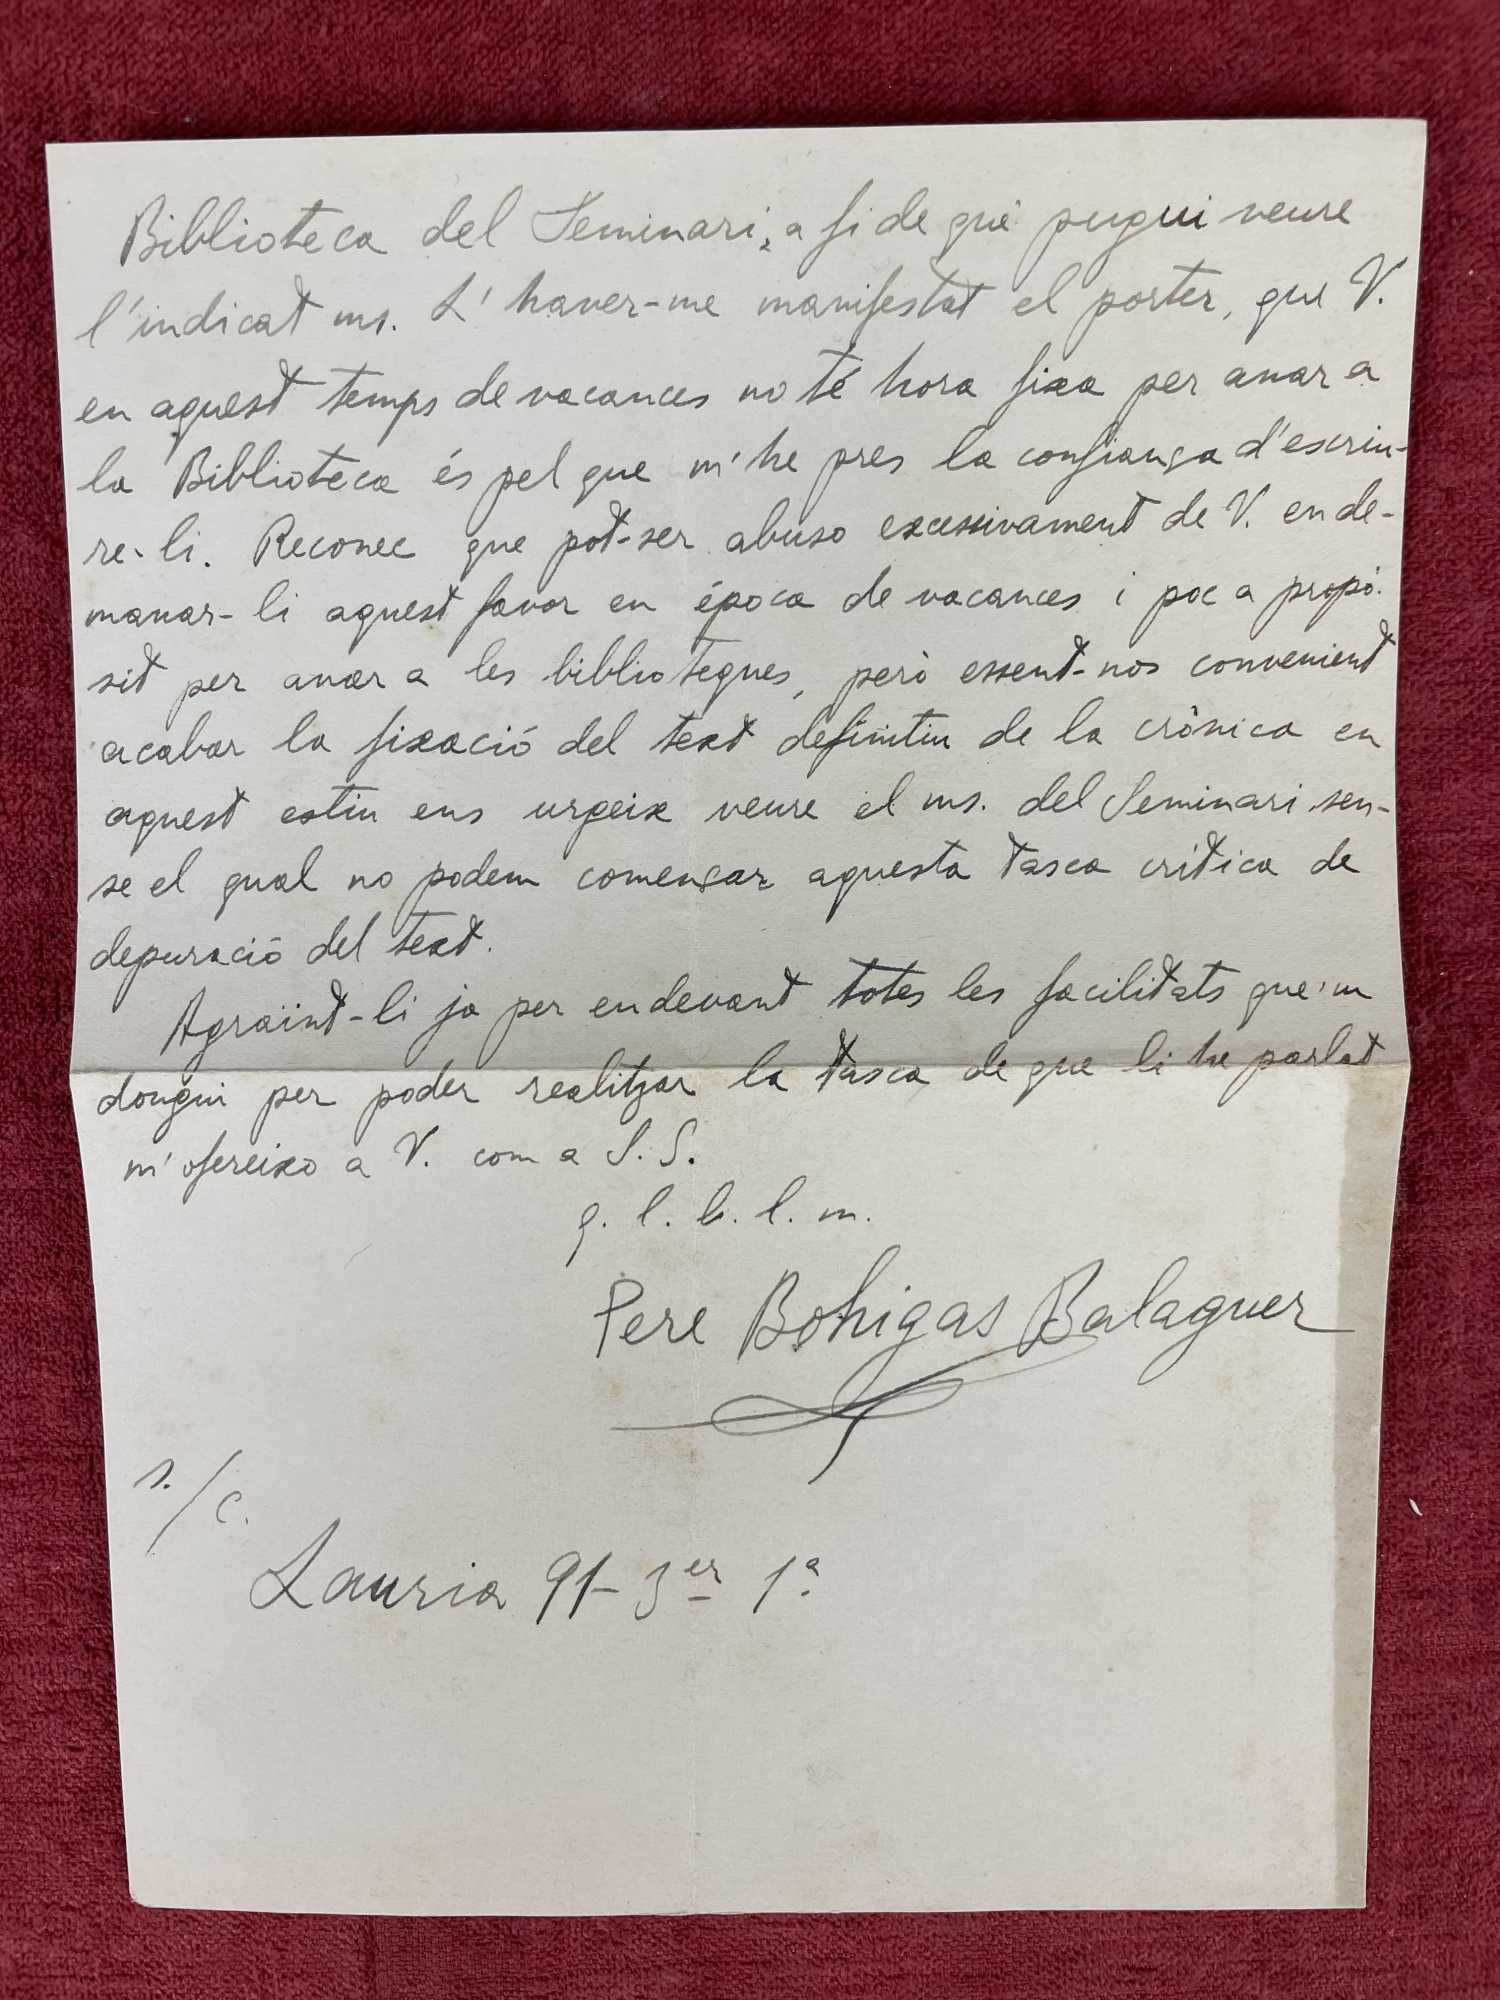 Biblioteca del Seminari, a fi de què pugui veure
l'indicat ms. L'haver-me manifestat el porter, que V.
en aquest temps de vacances no té hora fixa per anar a
la Biblioteca és pel que m'he pres la confiança d'escriu-
re-li. Reconec que pot-ser abuso excessivament de V. en de-
manar-li aquest favor en época de vacances i poc a propò-
sit per anar a les biblioteques, però essent-nos convenient
acabar la fixació del text definitiu de la crònica en
aquest estiu ens urgeix veure el ms. del Seminari sen-
se el qual no podem començar aquesta tasca crítica de
depuració del text.
Agraint-li ja per endevant totes les facilitats que'm
dongui per poder realitzar la tasca de que li he parlat
m'ofereixo a V. com a S. S.
q. l. b. l. m.
Pere Bohigas Balaguer
s./c.
Lauria 91- 3er 1ª